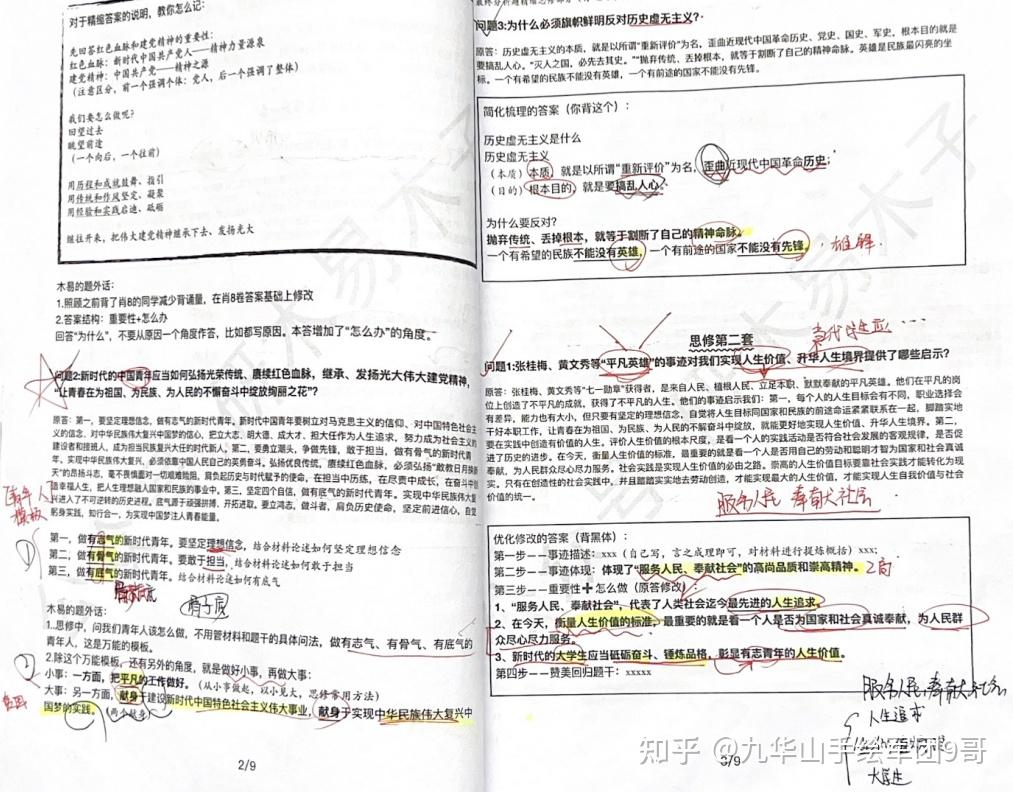 对于精缩答案的说明，教你怎么记：
先回答红色血脉和建党精神的重要性：
红色血脉：新时代中国共产党人——精神力量源泉
建党精神：中国共产党——精神之源
（注意区分，前一个强调个体：党人，后一个强调了整体）
我们要怎么做呢？
回望过去
眺望前途
（一个向后，一个往前）
用历程和成就鼓舞、指引
用传统和作风坚定、凝聚
用经验和实践启迪、砥砺
继往开来，把伟大建党精神继承下去、发扬光大
木易的题外话：
1.照顾之前背了肖8的同学减少背诵量，在肖8卷答案基础上修改
2.答案结构：重要性+怎么办
回答“为什么”，不要从原因一个角度作答，比如都写原因。本答增加了“怎么办”的角度。
问题2:新时代的中国青年应当如何弘扬光荣传统、赓续红色血脉，继承、发扬光大伟大建党精神，
“让青春在为祖国、为民族、为人民的不懈奋斗中绽放绚丽之花”？
原答：第一，要坚定理想信念，做有志气的新时代青年。新时代中国青年要树立对马克思主义的信仰、对中国特色社会主
义的信念、对中华民族伟大复兴中国梦的信心，把立大志、明大德、成大才、担大任作为人生追求，努力成为社会主义
建设者和接班人，成为担当民族复兴大任的时代新人。第二，要勇立潮头、争做先锋，敢于担当，做有骨气的新时代青
年。实现中华民族伟大复兴，必须依靠中国人民自己的英勇奋斗。弘扬优良传统，赓续红色血脉，必须弘扬“敢教日月换新
天”的昂扬斗志，毫不畏惧面对一切艰难险阻，肩负起历史与时代赋予的使命，在担当中历练，在尽责中成长，在奋斗中创
造幸福人生，把人生理想融入国家和民族的事业中。第三，坚定四个自信，做有底气的新时代青年。实现中华民族伟大复
兴进入了不可逆转的历史进程。底气源于顽强拼搏、开拓进取。要立鸿志、做斗者，肩负历史使命，坚定前进信心，自觉
躬身实践，知行合一，为实现中国梦注入青春能量。
青年人
模板
①
第一，做有志气的新时代青年。要坚定理想信念，结合材料论述如何坚定理想信念
第二，做有骨气的新时代青年。要敢于担当，结合材料论述如何敢于担当
第三，做有底气的新时代青年。结合材料论述如何有底气
木易的题外话：
1..思修中，问我们青年人该怎么做，不用管材料和题干的具体问法，做有志气、有骨气、有底气的
青年人，这是万能的模板。
②
2.除这个万能模板，还有另外的角度，就是做好小事，再做大事：
小事：一方面，把平凡的工作做好。（从小事做起，以小见大，思修常用方法）
大事：另一方面，献身于建设新时代中国特色社会主义伟大事业，献身于实现中华民族伟大复兴中
国梦的实践。（两个献身）
2/9
问题3:为什么必须旗帜鲜明反对历史虚无主义？
原答：历史虚无主义的本质，就是以所谓“重新评价”为名，歪曲近现代中国革命历史、党史、国史、军史，根本目的就是
要搞乱人心。“灭人之国，必先去其史。”“抛弃传统、丢掉根本，就等于割断了自己的精神命脉。英雄是民族最闪亮的坐
标。一个有希望的民族不能没有英雄，一个有前途的国家不能没有先锋。
简化梳理的答案（你背这个）：
历史虚无主义是什么
历史虚无主义
（本质）本质，就是以所谓“重新评价”为名，歪曲近现代中国革命历史；
（目的）根本目的，就是要搞乱人心。
为什么要反对？
抛弃传统、丢掉根本，就等于割断了自己的精神命脉。
一个有希望的民族不能没有英雄，一个有前途的国家不能没有先锋。
思修第二套
问题1:张桂梅、黄文秀等“平凡英雄”的事迹对我们实现人生价值、升华人生境界提供了哪些启示？
原答：张桂梅、黄文秀等“七一勋章”获得者，是来自人民、植根人民，立足本职、默默奉献的平凡英雄。他们在平凡的岗
位上创造了不平凡的成就，获得了不平凡的人生。他们的事迹启示我们：第一，每个人的人生目标会有不同，职业选择会
有差异，能力也有大小，但只要有坚定的理想信念，自觉将人生目标同国家和民族的前途命运紧紧联系在一起，脚踏实地
干好本职工作，让青春在为祖国、为民族、为人民的不懈奋斗中绽放，就能更好地实现人生价值、升华人生境界。第二，
要在实践中创造有价值的人生。评价人生价值的根本尺度，是看一个人的实践活动是否符合社会发展的客观规律，是否促
进了历史的进步。在今天，衡量人生价值的标准，最重要的就是看一个人是否用自己的劳动和聪明才智为国家和社会真诚
奉献，为人民群众尽心尽力服务。社会实践是实现人生价值的必由之路。崇高的人生价值目标要靠社会实践才能转化为现
实，只有在创造性的社会实践中，并且踏踏实实地去劳动创造，才能实现最大的人生价值，才能实现人生自我价值与社会
价值的统一。
服务人民 奉献社会
优化修改的答案（背黑体）：
第一步——事迹描述：xxx（自己写，言之成理即可，对材料进行提炼概括）xxx；
第二步——事迹体现：体现了“服务人民、奉献社会”的高尚品质和崇高精神。
第三步——重要性+怎么做（原答修改）：
1、“服务人民、奉献社会”，代表了人类社会迄今最先进的人生追求。
2、在今天，衡量人生价值的标准，最重要的就是看一个人是否为国家和社会真诚奉献，为人民群
众尽心尽力服务。
3、新时代的大学生应当砥砺奋斗、锤炼品格，彰显有志青年的人生价值。
第四步——赞美回归题干：xxxxx
服务人民，奉献社会
人生追求
大学生
3/9
知乎 @九华山手绘军团9哥